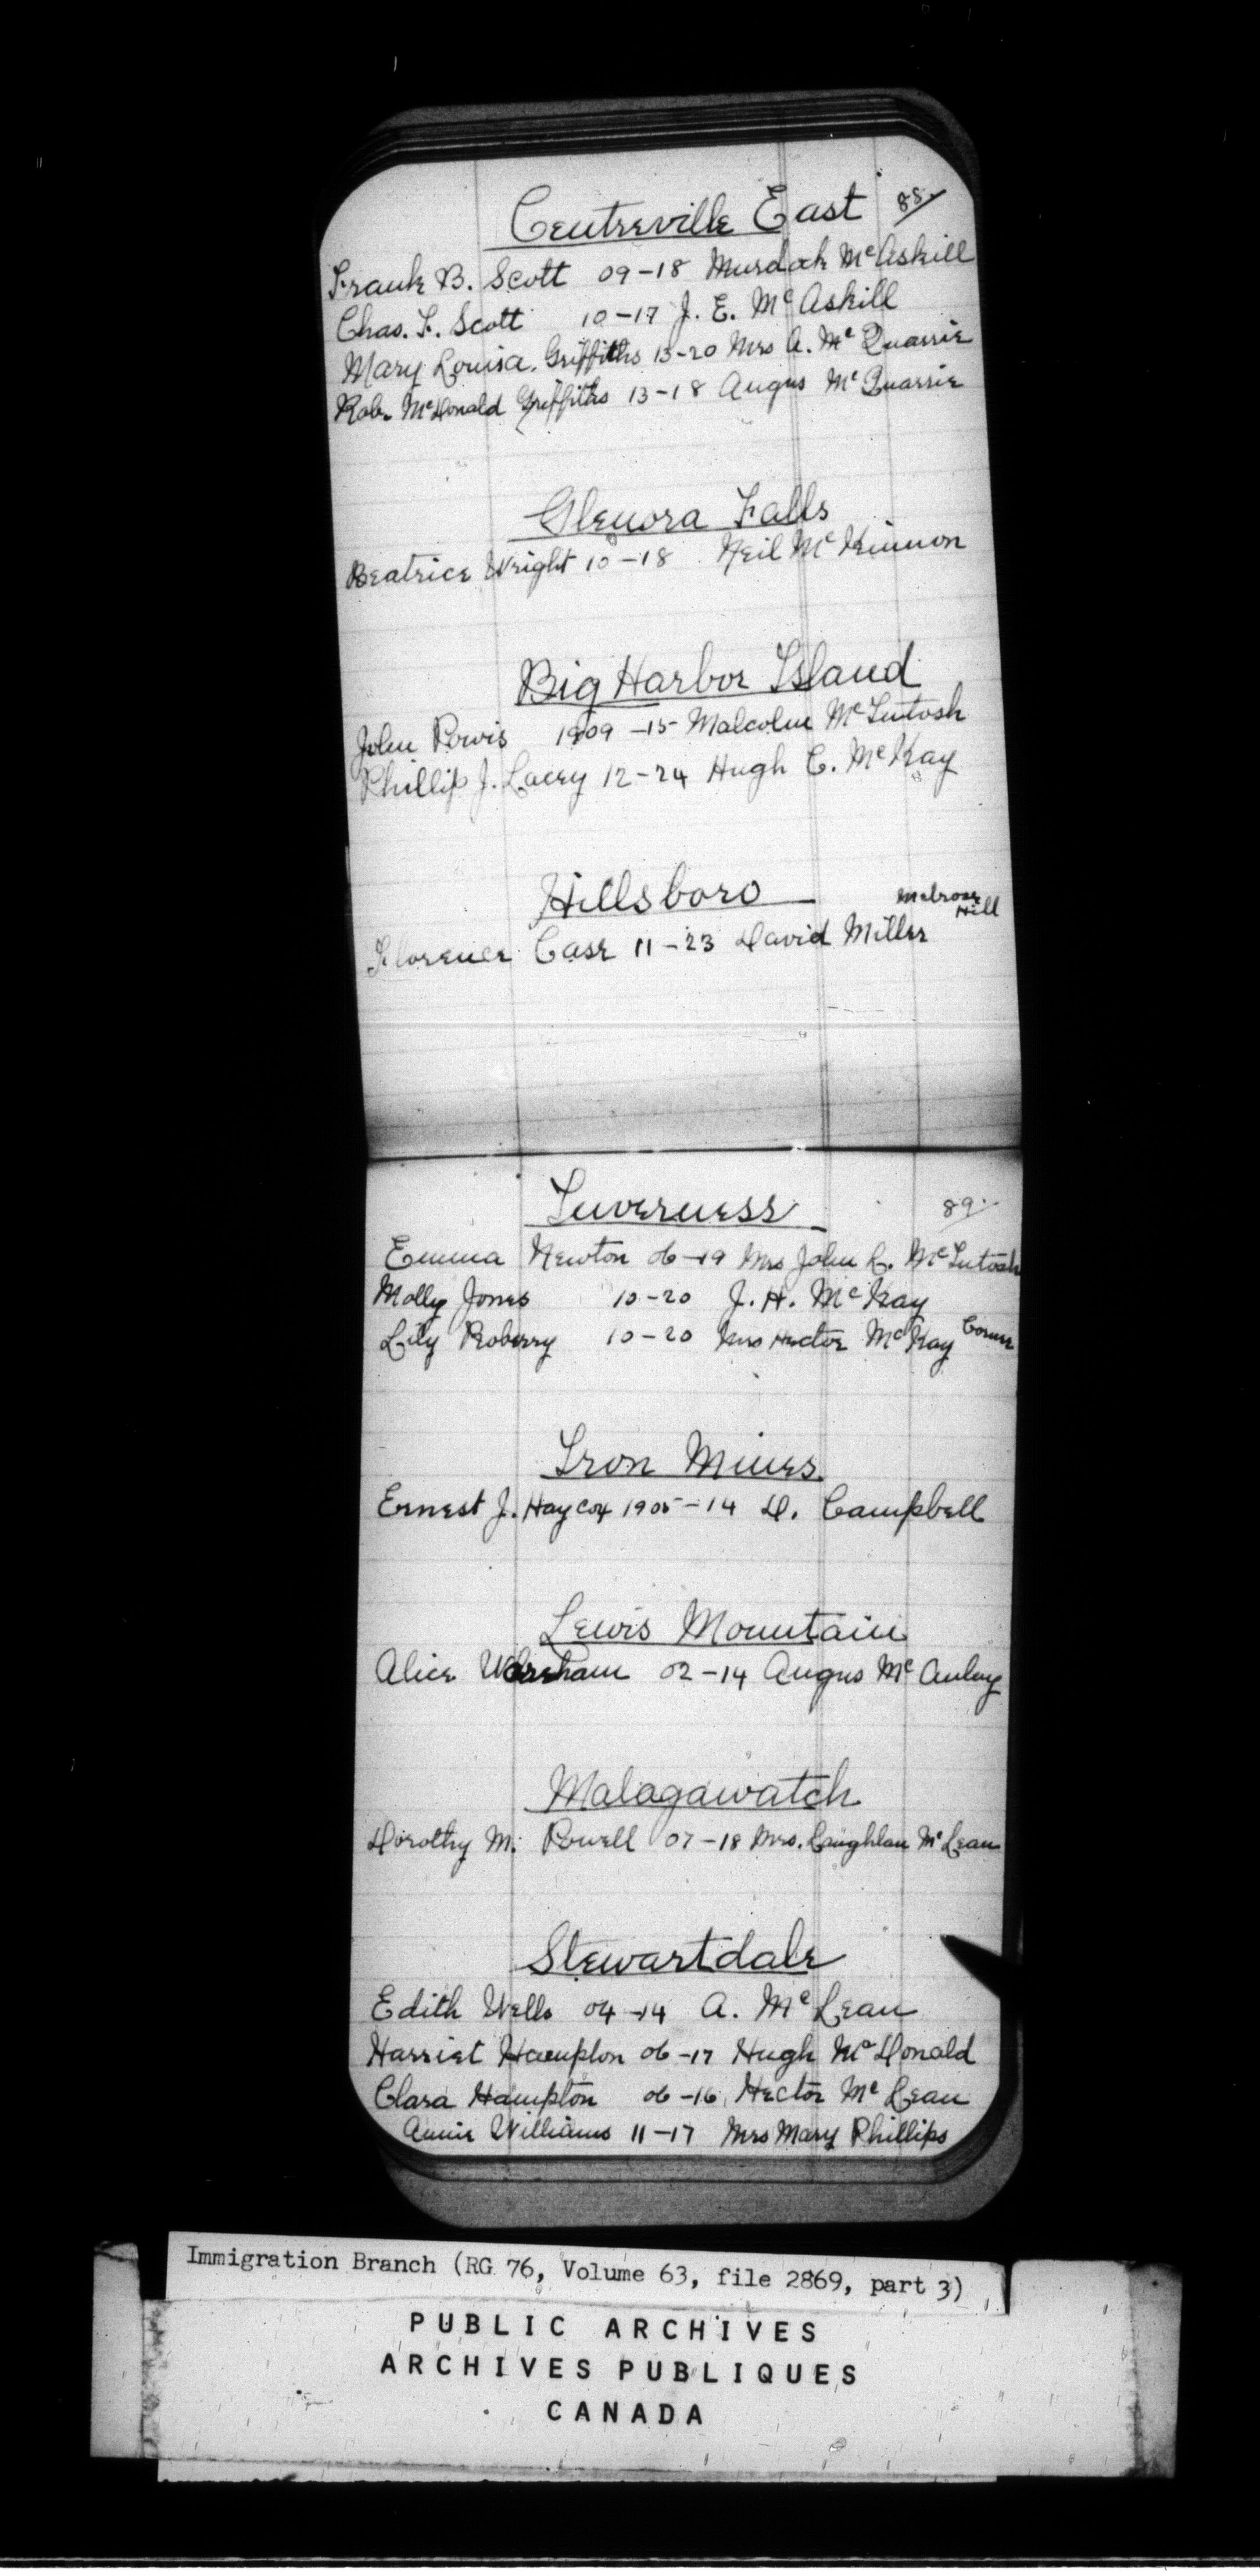 88.
Centreville East
Frank B. Scott 09-18 Murdock McAskill
Chas. F. Scott 10-17 J. E. McAskill
Mary Louisa Griffiths 13-20 Mrs A. McQuarrie
Robr McDonald Griffiths 13-18 Angus McQuarrie
Glenora Falls
Beatrice Wright 10-18 Neil McKinnon
Big Harbor Island
John Powis 1909-15 Malcolm McIntosh
Phillip J. Lacey 12-24 Hugh C. McKay
Hillsboro
Melrose Hill
Florence Case 11-23 David Miller
Inverness
89.
Emma Newton 06-19 Mrs John R. McIntosh
Molly Jones 10-20 J. H. McKay
Lily Roberry 10-20 Mrs Hector McKay
Iron Mines
Ernest J. Haycox 1905-14 D. Campbell
Lewis Mountain
Alice Wareham 02-14 Angus McAulay
Malagawatch
Dorothy M. Powell 07-18 Mrs. Laughlan McLean
Stewartdale
Edith Wells 04-14 A. McLean
Harriet Hampton 06-17 Hugh McDonald
Clara Hampton 06-16 Hector McLean
Annie Williams 11-17 Mrs Mary Phillips
Immigration Branch (RG 76, Volume 63, file 2869, part 3)
PUBLIC ARCHIVES
ARCHIVES PUBLIQUES
CANADA